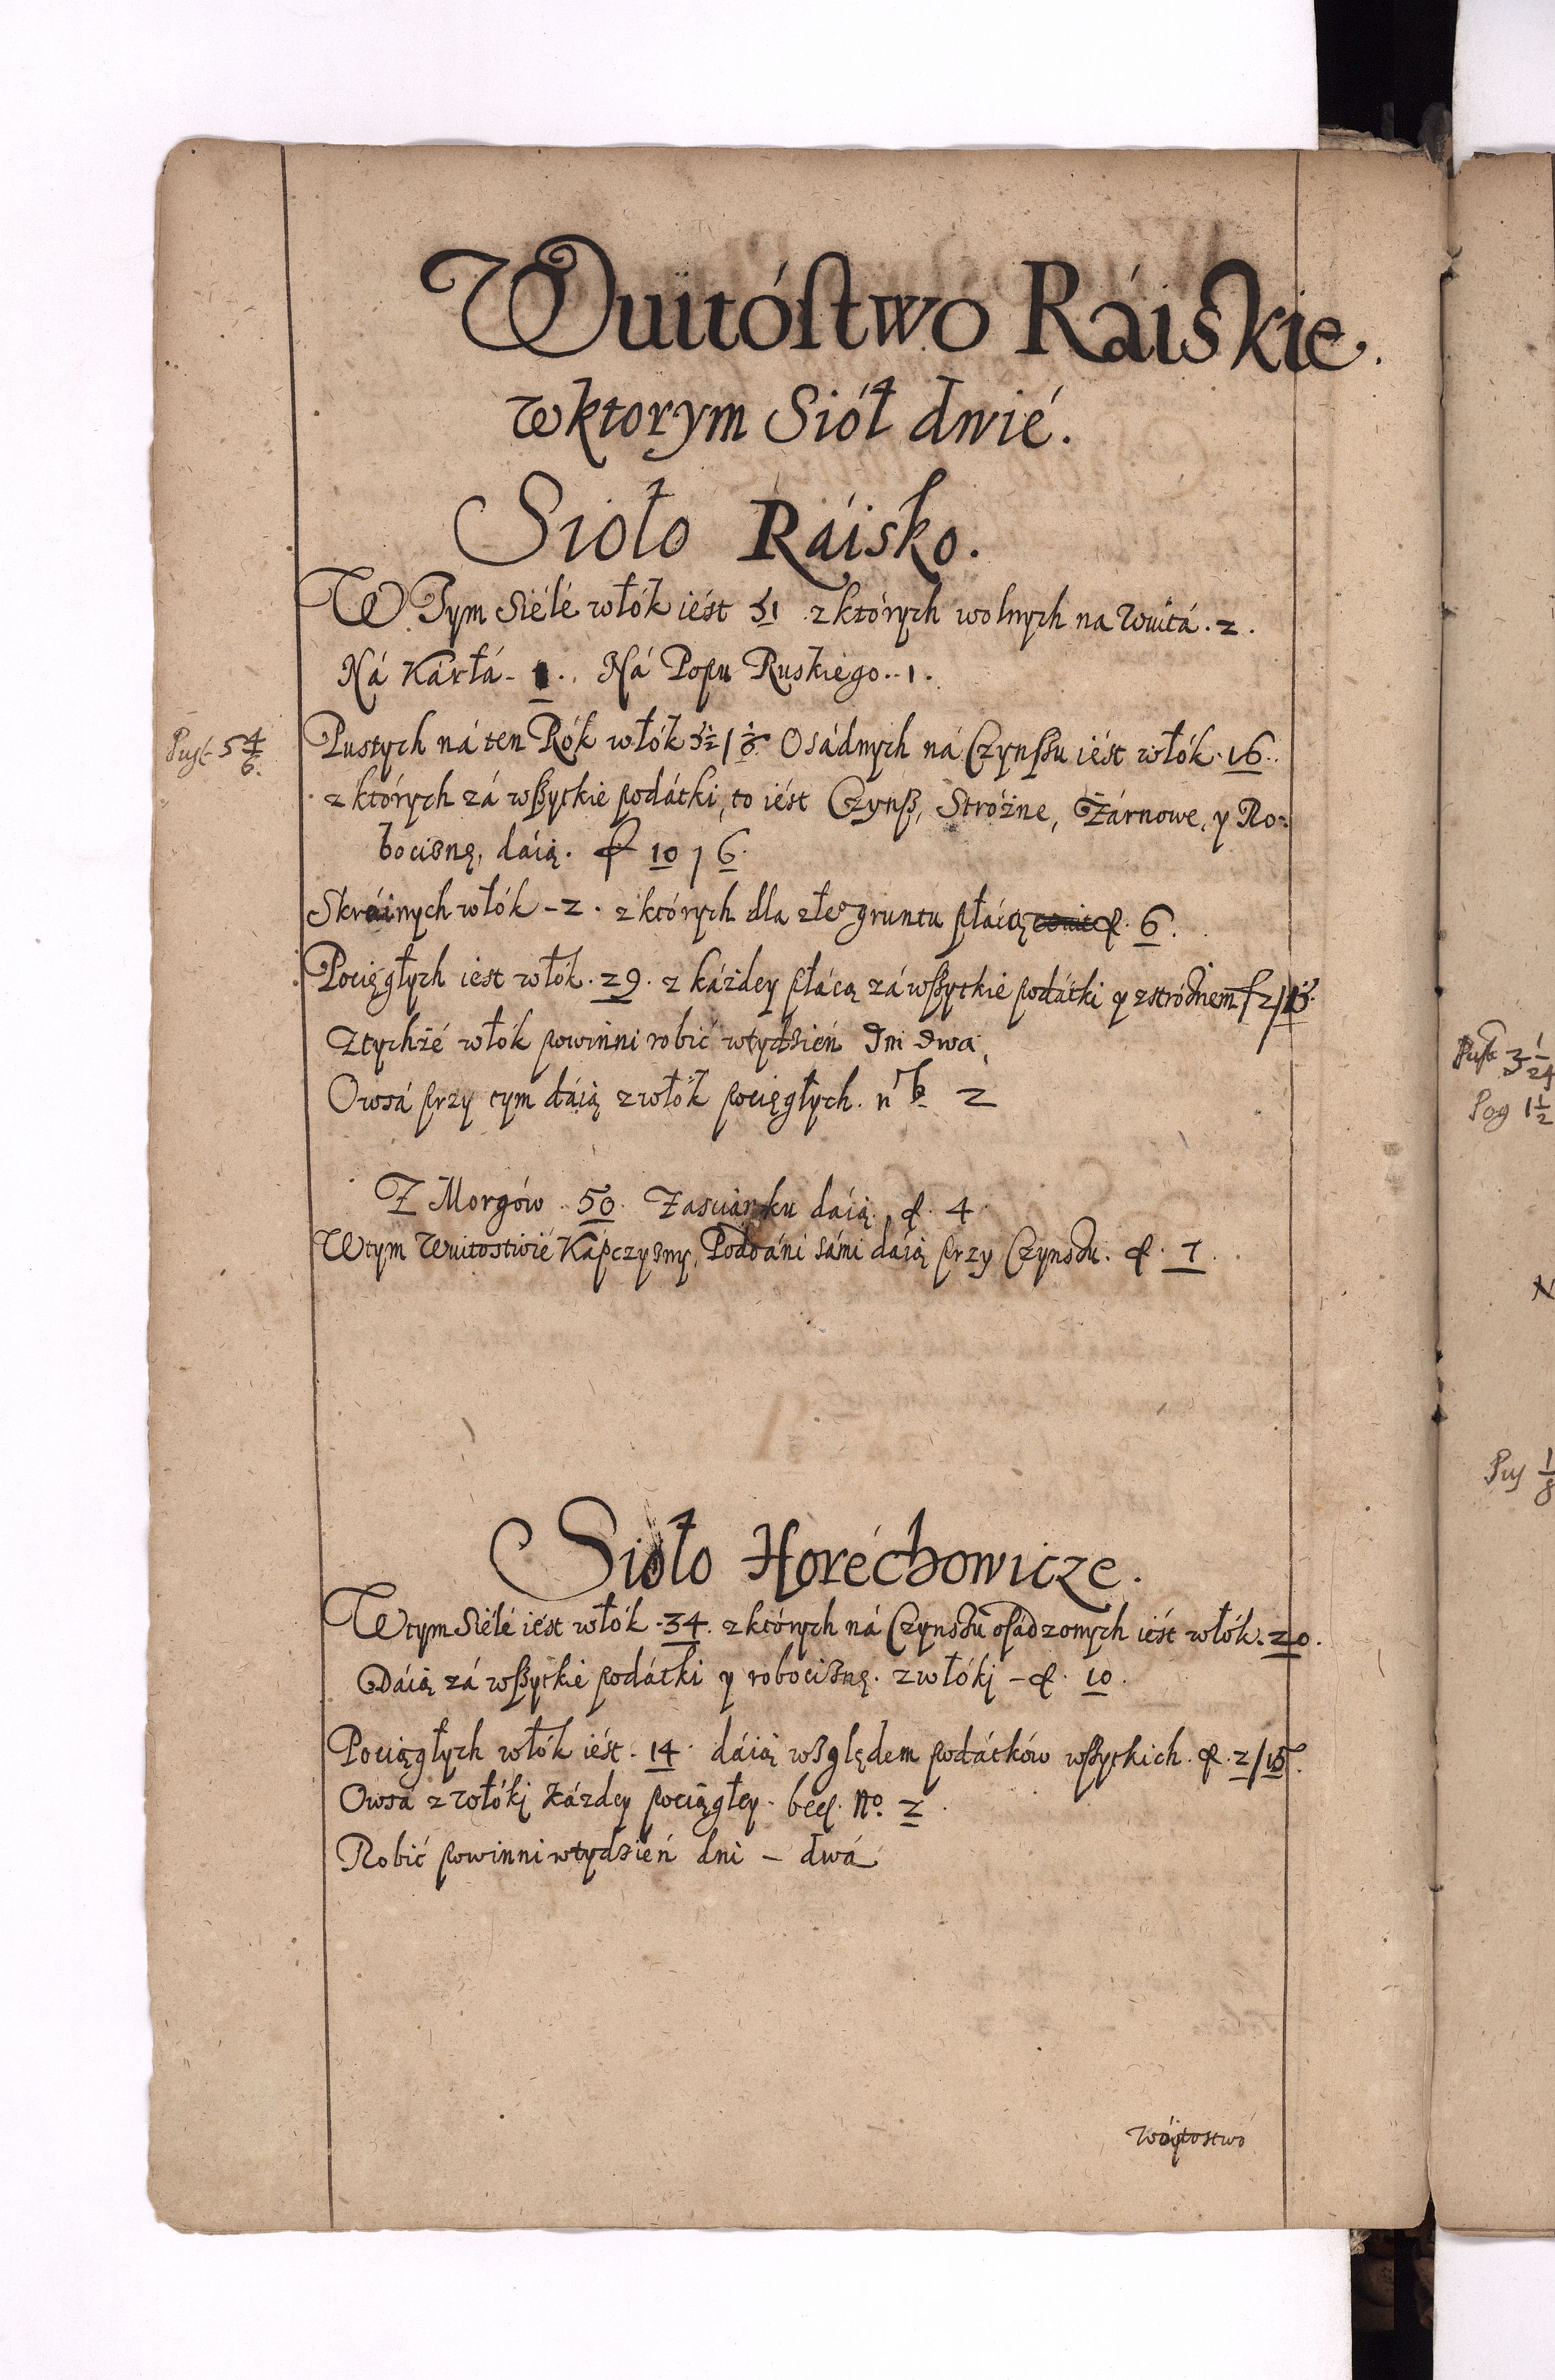 Wuitóſtwo Ráiskie.
w ktorym Siół dwié.
Sioło Ráisko.
W Tym Siélé włók iést 51 z których wolnych na Wuitá. 2.
Ná Kárłá - 1. Ná Popu Ruskiego.. 1.
Pust 5 4/6.
Pustych ná ten Rók włók Osádnych ná Czynſsu iést włók. 16.
z których zá wſsytkie podátki, to iést Czynß, Stróżne, Żárnowe, y Ro:
bociznę, dáią. f 10 / 6.
Skráinych włók - 2. z których dla złeº gruntu płácą f. 6.
Pociągłych iest włók. 29. z káżdey płácą zá wſsytkie podátki y z stróżnem f 2/15.
Z tychżé włók powinni robić w tydzień dni dwa,
Owsá przy tym dáią z włók pociągłych. nº b 2
Z Morgów. 50. Zasciánku dáią. f. 4
W tym Wuitostwié Kápczyzny, Poddáni sámi dáią przy Czynszu. f. 7.
Sioło Horéchowicze.
W tym Siélé iést włók. 34. z których ná Czynszu osádzonych iést włók. 20.
Dáią zá wſsytkie podátki y robociznę. z włóki - f. 10.
Pociągłych włók iést. 14. dáią względem podátków wſsytkich. f. 2/15.
Owsa z włóki káżdey pociągłey. becz. Nº. 2.
Robić powinni w tydzień dni - dwá
Wóytostwo
Pust 3 1/24
Pog 1 1/2
Pus 1/8